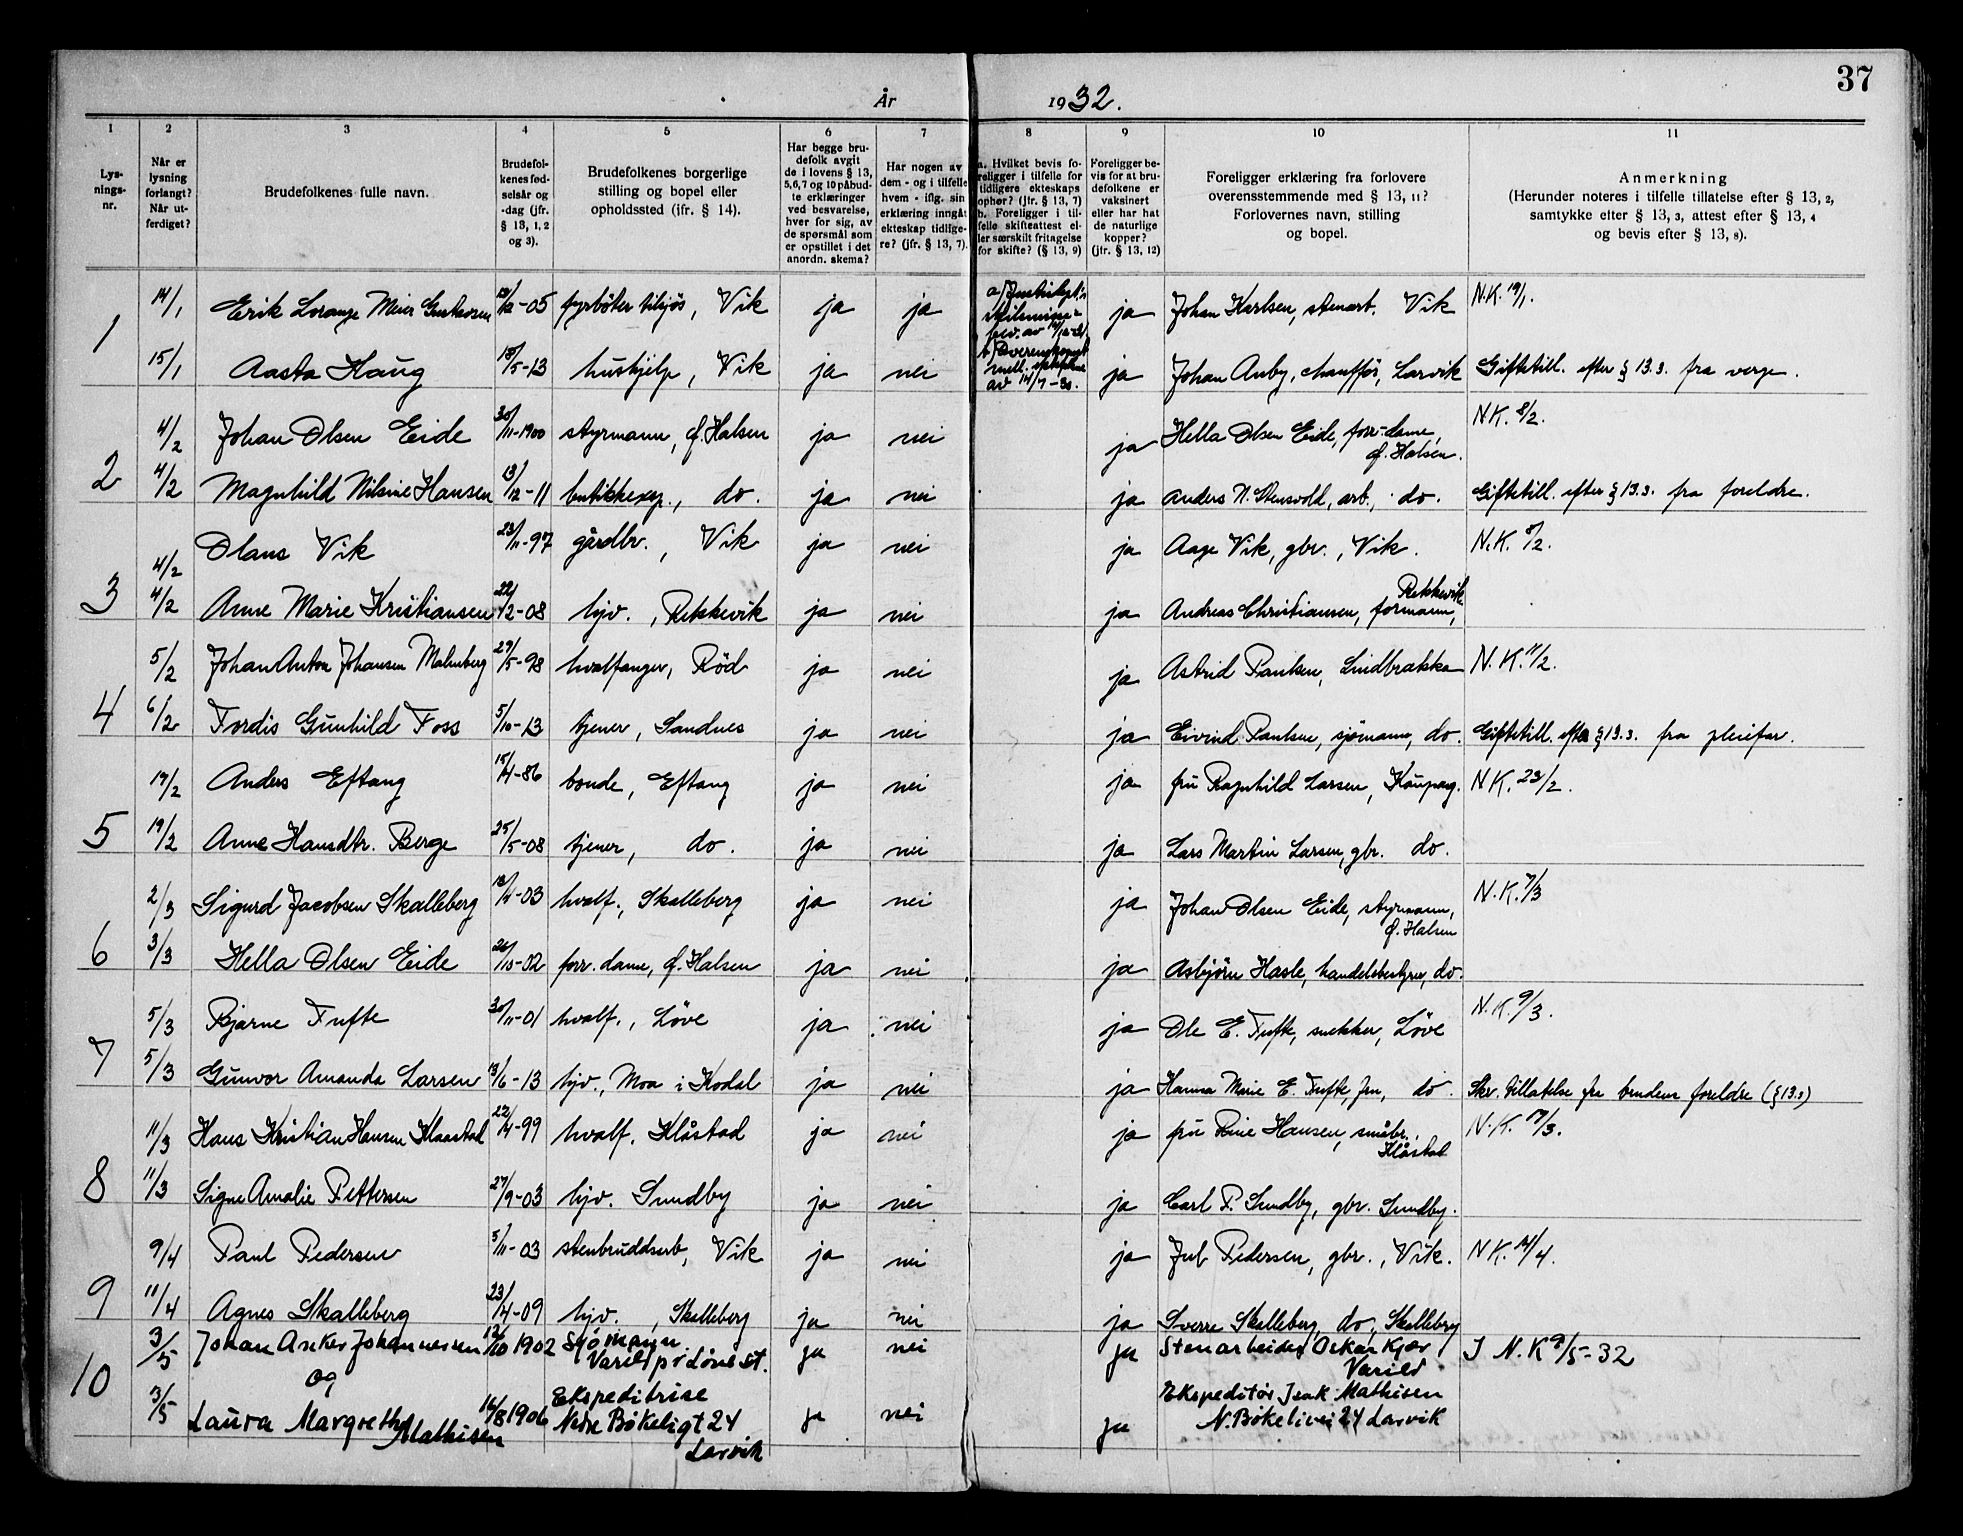 37
År 1932.
1 2 3 4 5 6 7 8 9 10 11
Lys-
nings-
nr.
Når er
lysning
forlangt?
Når ut-
ferdiget?
Brudefolkenes fulle navn.
Brudefol-
kenes fød-
selsår og
-dag (jfr.
§ 13, 1, 2
og 3).
Brudefolkenes borgerlige
stilling og bopel eller
opholdssted (ifr. § 14).
Har begge bru-
defolk avgit
de i lovens § 13,
5,6,7 og 10 påbud-
te erklæringer
ved besvarelse,
hver for sig, av
de spørsmål som
er opstillet i det
anordn. skema?
Har nogen av
dem - og i tilfelle
hvem - iflg. sin
erklæring inngåt
ekteskap tidlige-
re? (jfr. § 13, 7).
a. Hvilket bevis fo-
religger i tilfelle for
tidligere ekteskaps
ophør? (jfr. § 13, 7)
b. Foreligger i til-
felle skifteattest el-
ler særskilt fritagelse
for skifte? (§ 13, 9)
Foreligger be-
vis for at bru-
defolkene er
vaksinert
eller har hat
de naturlige
kopper?
(jfr. § 13, 12)
Foreligger erklæring fra forlovere
overensstemmende med § 13, 11?
Forlovernes navn, stilling
og bopel.
Anmerkning
(Herunder noteres i tilfelle tillatelse efter § 13, 2,
samtykke efter § 13, 3, attest efter § 13, 4
og bevis efter § 13, 8).
1 14/1 Erik Lorange Meier Gustavsen /12-05 fyrbøter tilsjøs, Vik ja ja ja Johan Karlsen, stenarb. Vik N.K. 19/1.
15/1 Aasta Haug 18/5-13 hushjelp, Vik ja nei av 14/7-30. ja Johan Auby, chauffør, Larvik Giftetill. efter § 13.3. fra verge.
2 4/2 Johan Olsen Eide 30/11-1900 styrmann, Ø. Halsen ja nei ja Hella Olsen Eide, forr.dame, Ø. Halsen. N.K. 8/2.
4/2 Magnhild Nilsine Hansen 13/12-11 butikkexp., do. ja nei ja Anders N. Stensvold, arb., do. Giftetill. efter § 13.3. fra foreldre.
3 4/2 Olaus Vik 23/11-97 gårdbr., Vik ja nei ja Aage Vik, gbr., Vik. N.K. 8/2.
4/2 Anne Marie Kristiansen 22/2-08 hjv., Rekkevik ja nei ja Andreas Christiansen, formann, Rekkevik
4 5/2 Johan Anton Johansen Malmberg 29/5-98 hvalfanger, Rød ja nei ja Astrid Paulsen, Lindbrækka N.K. 11/2.
6/2 Tordis Gunhild Foss 5/10-13 tjener, Sandnes ja nei ja Eivind Paulsen, sjømann, do. Giftetill. efter § 13.3. fra pleiefar.
5 19/2 Anders Eftang 15/4-86 bonde, Eftang ja nei ja fru Ragnhild Larsen, Kaupang. N.K. 23/2.
19/2 Anne Hansdtr. Berge 25/5-08 tjener, do. ja nei ja Lars Martin Larsen, gbr. do.
6 2/3 Sigurd Jacobsen Skalleberg 18/4-03 hvalf., Skalleberg ja nei ja Johan Olsen Eide, styrmann, Ø. Halsen N.K. 7/3
3/3 Hella Olsen Eide 26/10-02 forr.dame, Ø. Halsen ja nei ja Asbjørn Hasle, handelsbestyrer, do.
7 5/3 Bjarne Tufte 30/11-01 hvalf., Løve ja nei ja Ole E. Tufte, snekker, Løve N.K. 9/3.
5/3 Gunvor Amanda Larsen 13/6-13 hjv., Moa i Kodal ja nei ja Hanna Marie E. Tufte, fru, do. Skr. tillatelse fra brudens foreldre (§ 13.3)
8 11/3 Hans Kristian Hansen Klaastad 22/4-99 hvalf. Klåstad ja nei ja fru Rine Hansen, småbr., Klåstad N.K. 17/3.
11/3 Signe Amalie Pettersen 27/9-03 hjv. Sundby ja nei ja Carl P. Sundby, gbr. Sundby.
9 9/4 Paul Pedersen 5/11-03 stenbruddsarb, Vik ja nei ja Jul Pedersen, gbr., Vik. N.K. 14/4.
11/4 Agnes Skalleberg 23/4-09 hjv., Skalleberg ja nei ja Sverre Skalleberg, do., Skalleberg
10 3/5 Johan Anker Johannessen 12/10 1902 Sjømann Varild pr Løve st. ja nei ja Stenarbeider Oskar Kjær Varild J N.K 9/5-32
og
3/5 Laura Margrethe Mathisen 14/8 1906 Ekspeditrise Nedre Bøkeligt 24 Larvik ja nei ja Ekspeditør Isak Mathisen N. Bøkelivei 24 Larvik